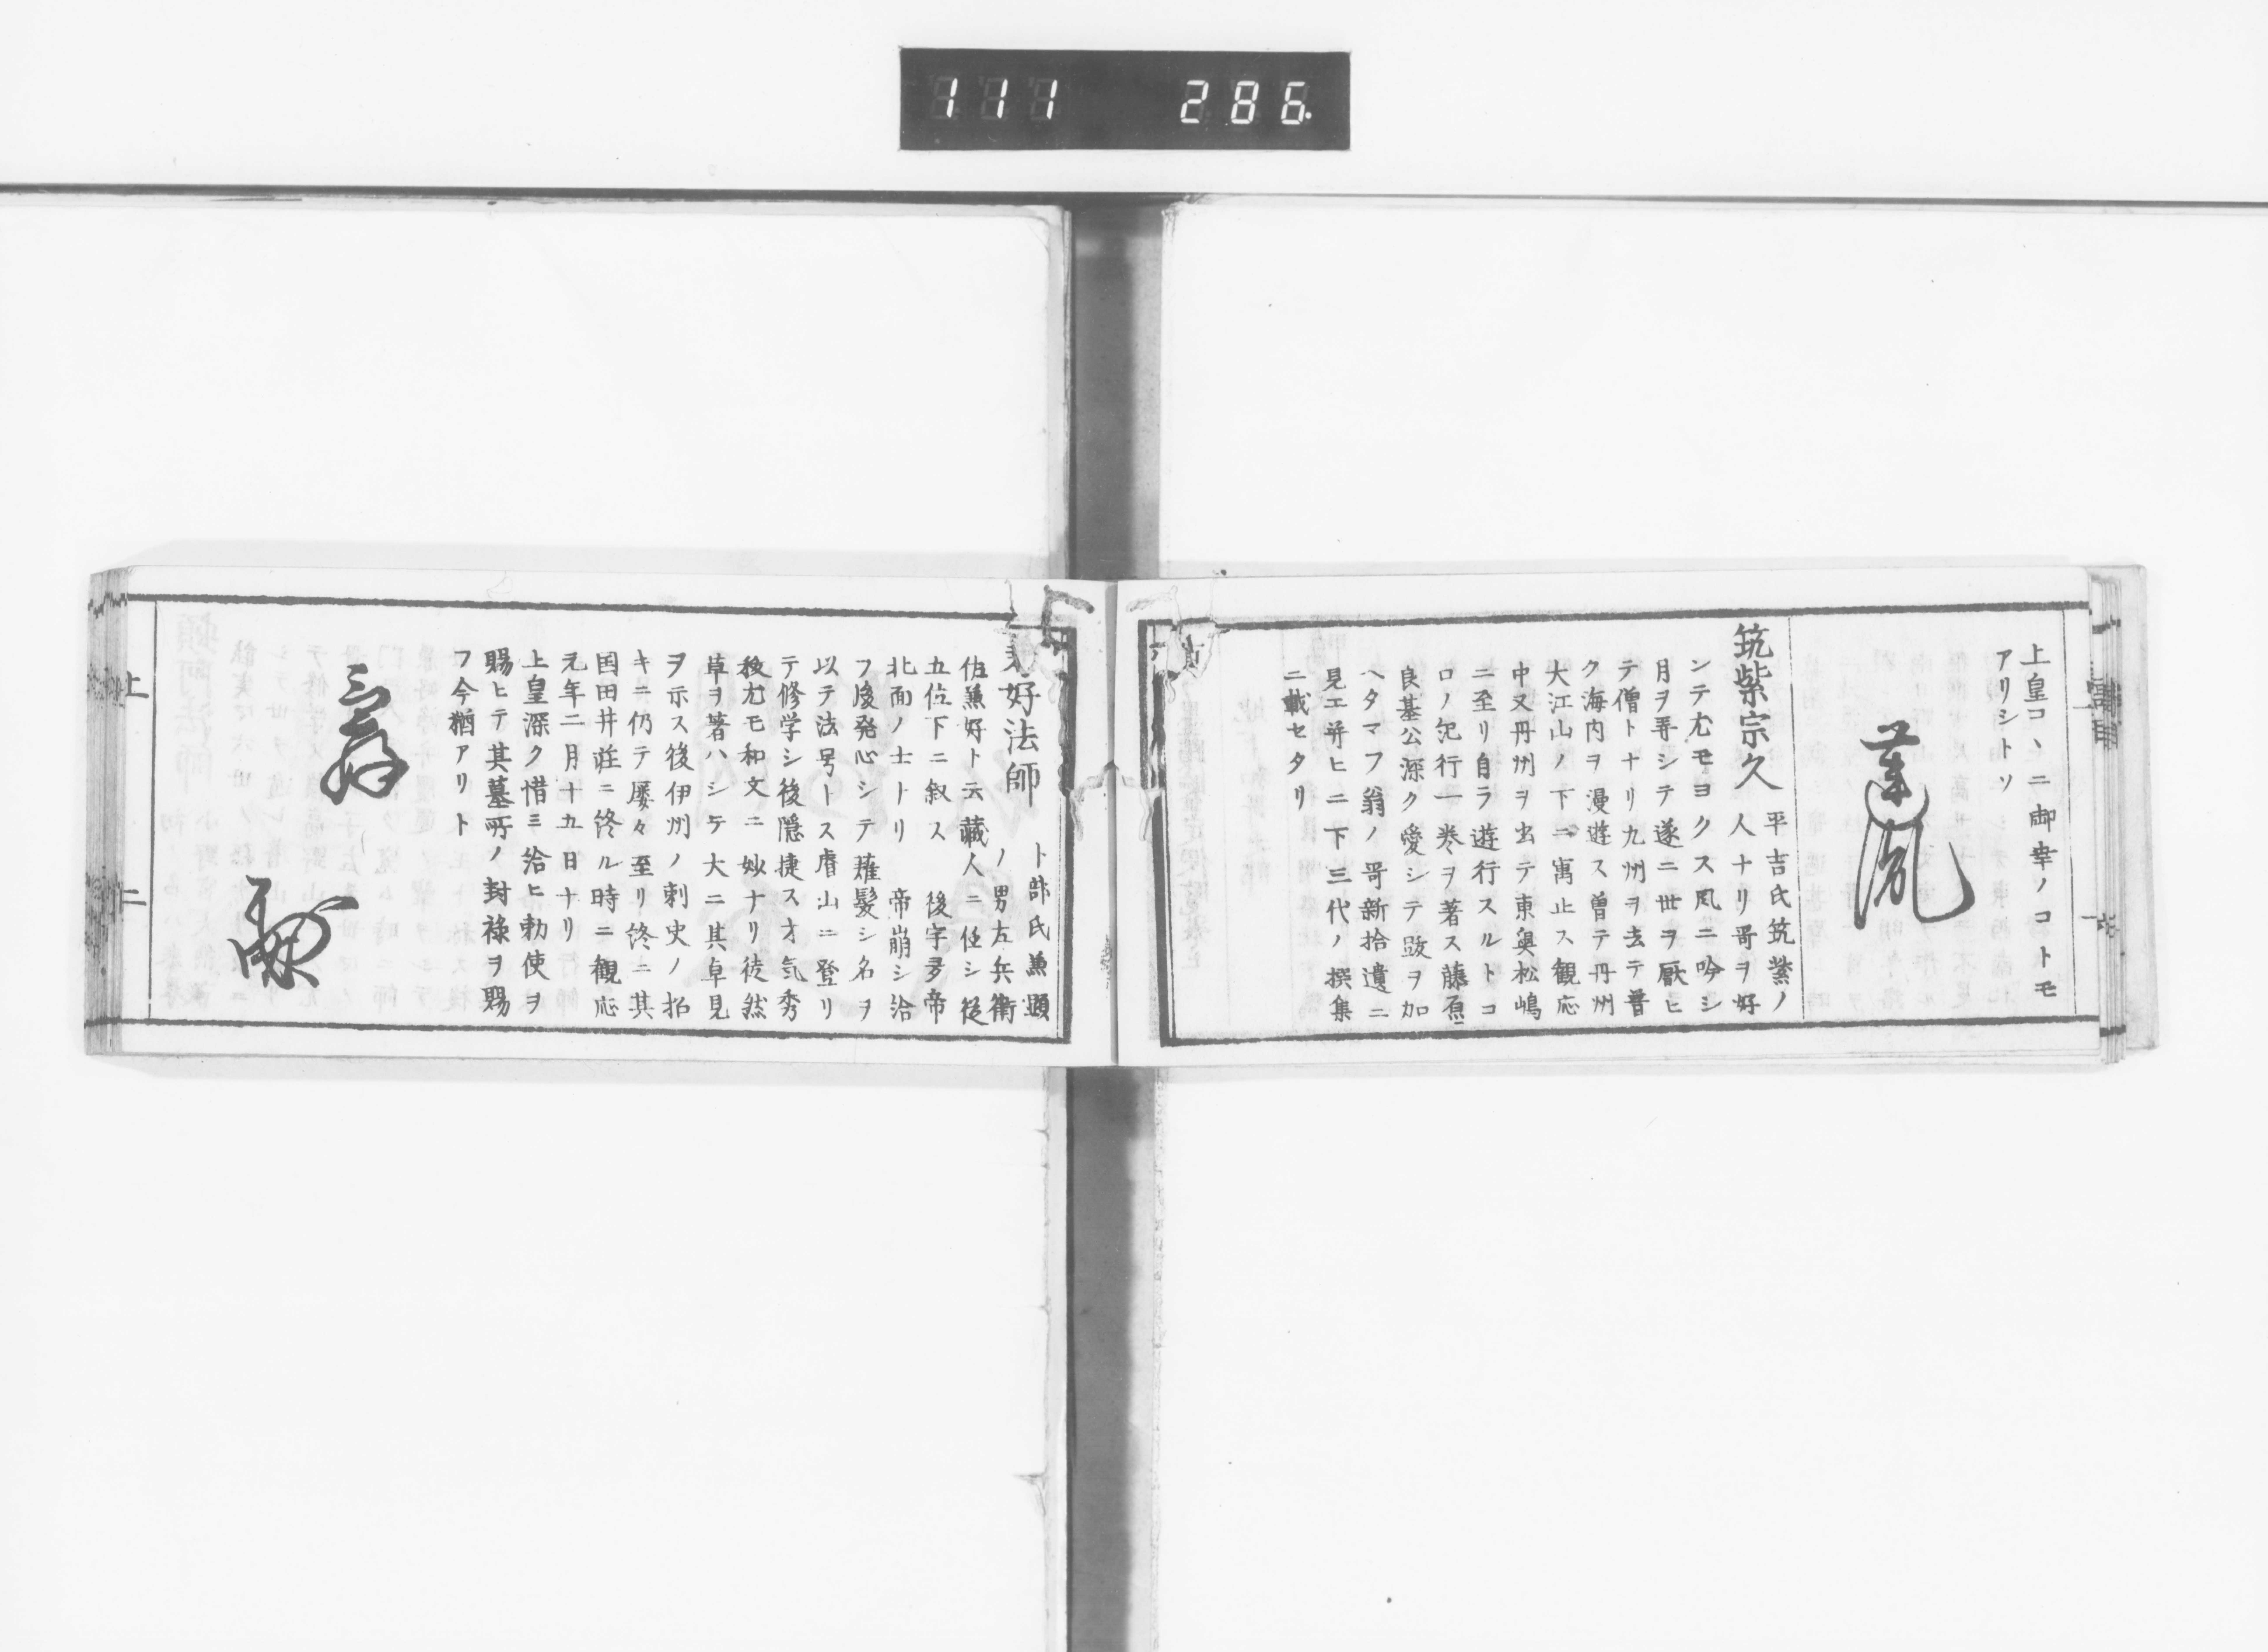 111 286
上皇コヽニ御幸ノコトモ
アリシトソ
筑紫宗久
平吉氏筑紫ノ
人ナリ哥ヲ好
ンテ尤モヨクス風ニ吟シ
月ヲ弄シテ遂ニ世ヲ厭ヒ
テ僧トナリ九州ヲ去テ普
ク海内ヲ漫遊ス曽テ丹州
大江山ノ下ニ寓止ス観応
中又丹州ヲ出テ東奥松嶋
ニ至リ自ラ遊行スルトコ
ロノ記行一巻ヲ著ス藤原
良基公深ク愛シテ跋ヲ加
ヘタマフ翁ノ哥新拾遺ニ
見エ并ヒニ下三代ノ撰集
ニ載セタリ
好法師
卜部氏兼顕
ノ男左兵衛
佐兼好ト云蔵人ニ任シ従
五位下ニ叙ス 後宇多帝
北面ノ士ナリ 帝崩シ給
フ後発心シテ薙髪シ名ヲ
以テ法号トス睿山ニ登リ
テ修学シ後隠捷ス才気秀
後尤モ和文ニ妙ナリ徒然
草ヲ著ハシテ大ニ其卓見
ヲ示ス後伊州ノ刺史ノ招
キニ仍テ屡々至リ終ニ其
国田井荘ニ終ル時ニ観応
元年二月十五日ナリ
上皇深ク惜ミ給ヒ勅使ヲ
賜ヒテ其墓所ノ封禄ヲ賜
フ今猶アリト
上 二